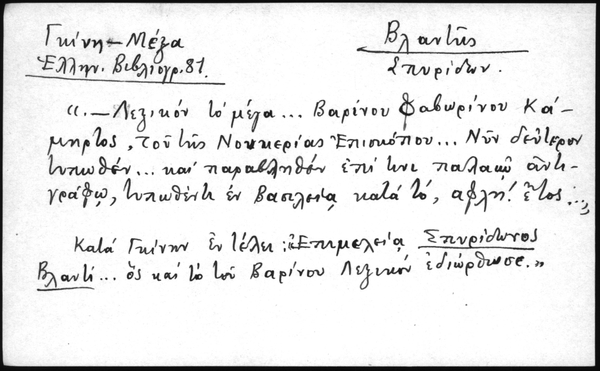 Γκίνη – Μέξα
Ἑλλην. Βιβλιογρ. 81.
Βλαντῆς
Σπυρίδων.
«.— Λεξικόν τό μέγα... Βαρίνου Φαβωρίνου Κά-
μηρτος, τοῦ τῆς Νουκερίας Ἐπισκόπου... Νῦν δεύτερον
τυπωθέν... καί παραβληθέν ἐπί τινι παλαιῷ ἀντι-
γράφῳ, τυπωθέντι ἐν Βασιλείᾳ κατά τό, αφλη! ἔτος...,
Κατά Γκίνην ἐν τέλει: «Ἐπιμελείᾳ Σπυρίδωνος
Βλαντῆ... ὅς καί τό τοῦ Βαρίνου Λεξικόν ἐδιώρθωσε.»